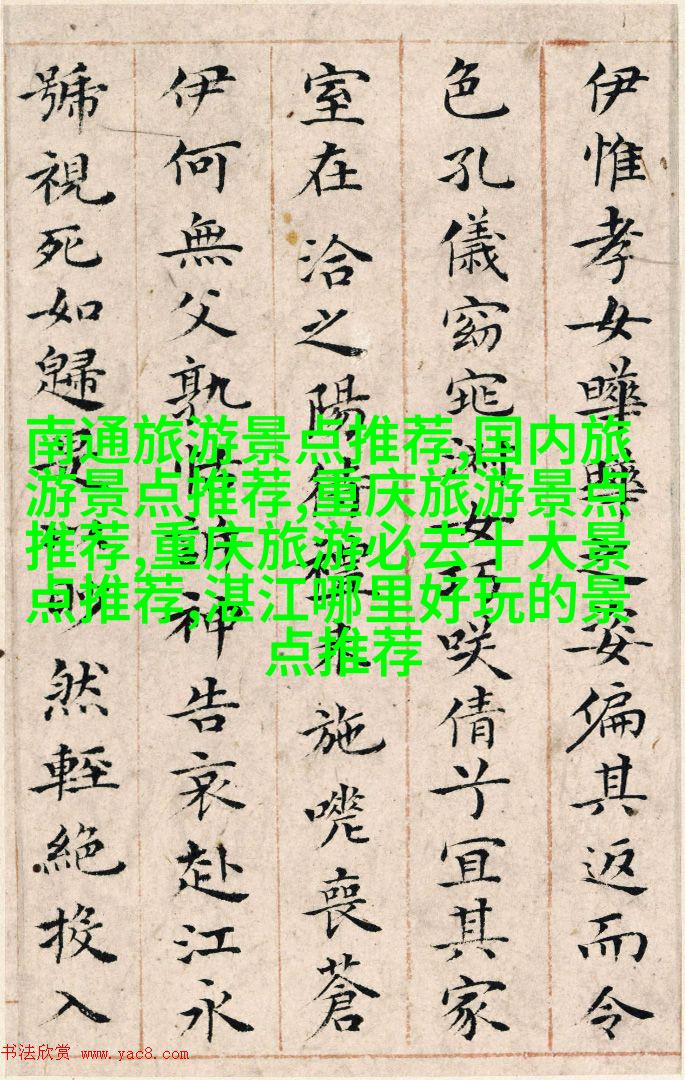 伊惟孝女曄曄之姿偏其返而令
色孔儀窈窕淑女巧咲倩兮宜其家
室在洽之陽待禮未施嗟喪蒼
伊何無父孰怙訴神告哀赴江永
號視死如歸是以眇然輕絕投入
南通旅游景点推荐,国内旅
游景点推荐,重庆旅游景点
推荐,重庆旅游必去十大景
点推荐,湛江哪里好玩的景
点推荐
书法欣赏 www.yac8.com